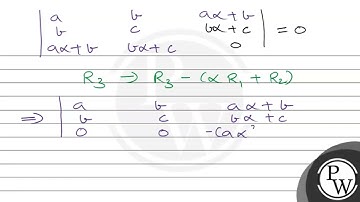 | a b aα+b |
| b c bα+c | = 0
| aα+b bα+c 0 |
R₃ → R₃ - (α R₁ + R₂)
⇒ | a b aα+b
| b c bα+c
| 0 0 -(aα²
P
W